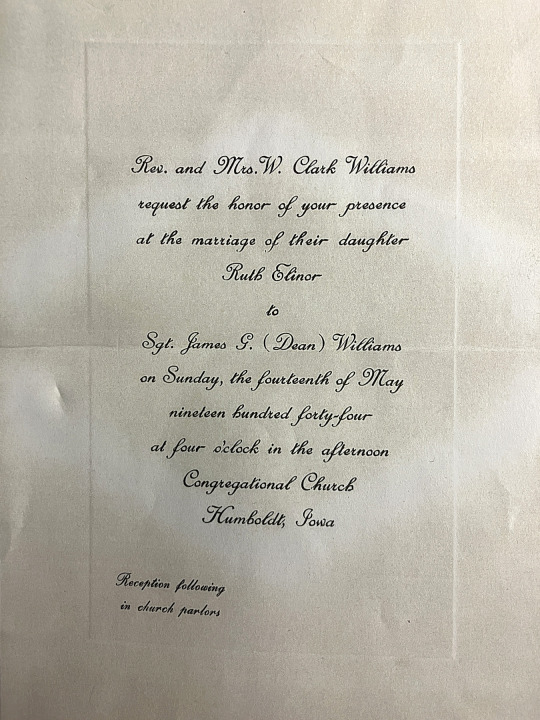 Rev. and Mrs. W. Clark Williams
request the honor of your presence
at the marriage of their daughter
Ruth Elinor
to
Sgt. James G. (Dean) Williams
on Sunday, the fourteenth of May
nineteen hundred forty-four
at four o'clock in the afternoon
Congregational Church
Humboldt, Iowa
Reception following
in church parlors